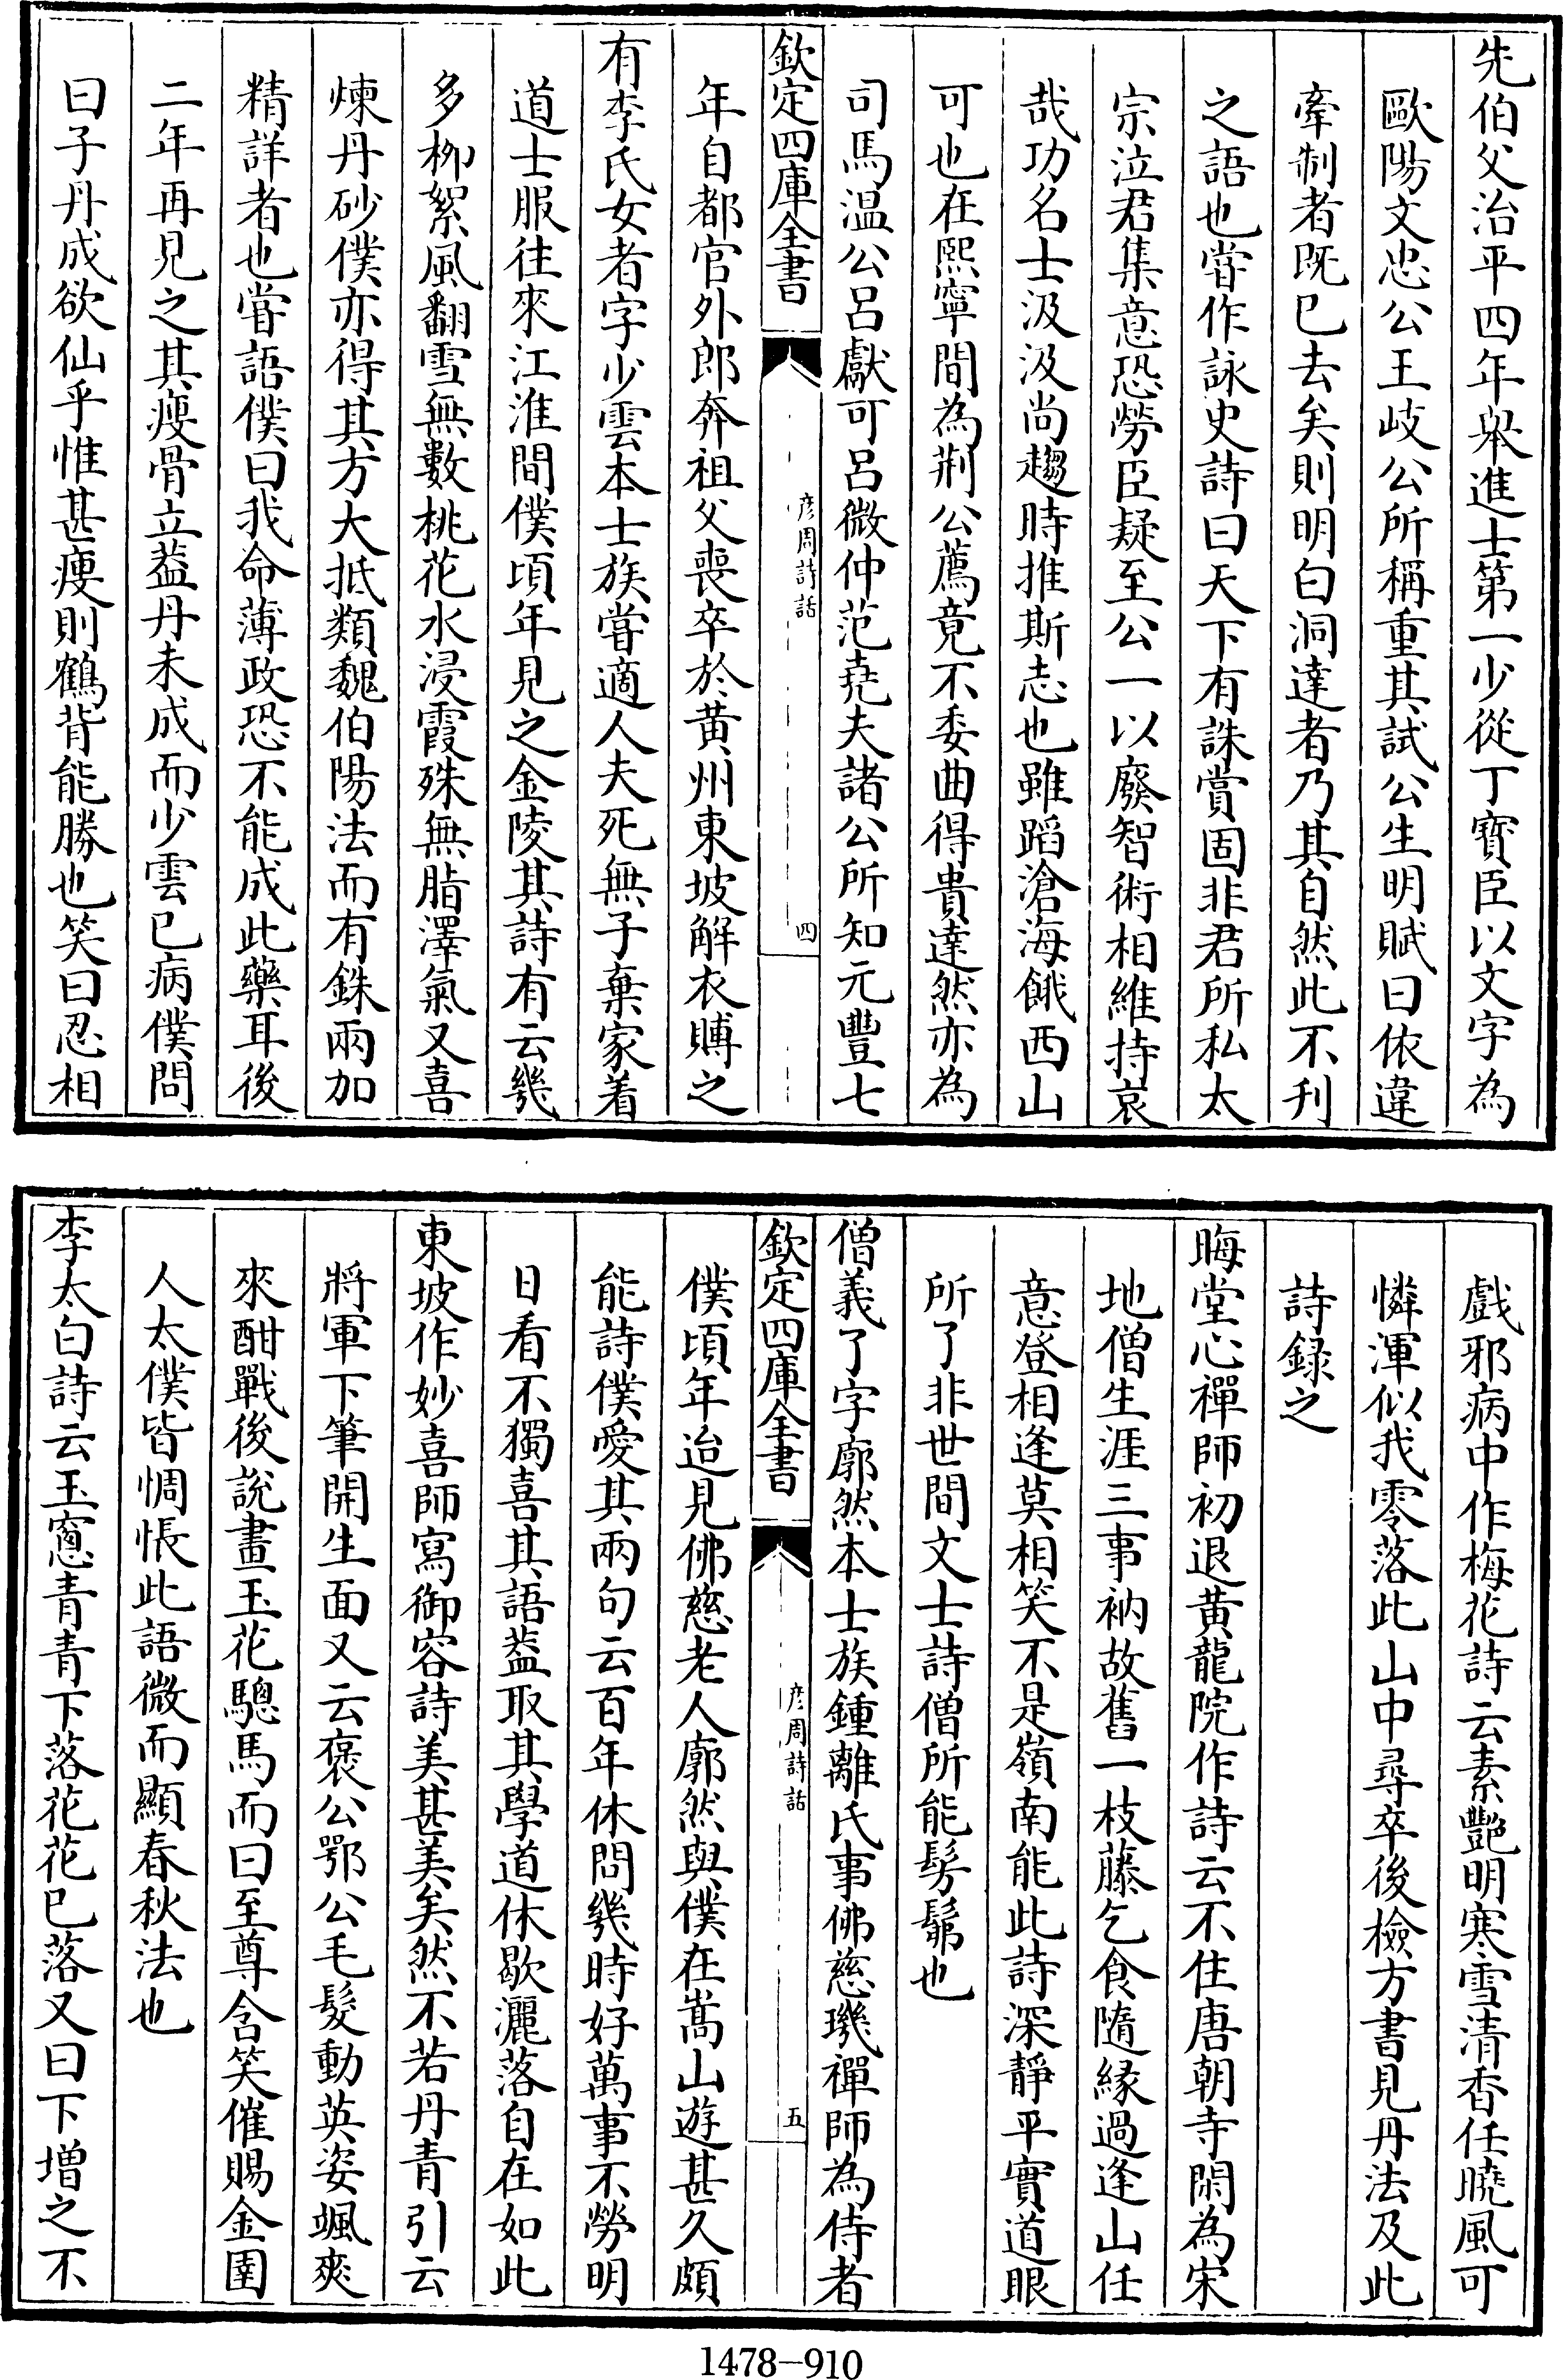 先伯父治平四年舉進士第一少從丁寳臣以文字為
歐陽文忠公王岐公所稱重其試公生明賦曰依違
牽制者既已去矣則明白洞達者乃其自然此不刋
之語也嘗作詠史詩曰天下有誅賞固非君所私太
宗泣君集意恐勞臣疑至公一以廢智術相維持哀
哉功名士汲汲尚趨時推斯志也雖蹈滄海餓西山
可也在熙寧間為荆公薦竟不委曲得貴達然亦為
司馬温公呂獻可呂微仲范堯夫諸公所知元豐七
欽定四庫全書
彦周詩話
四
年自都官外郎奔祖父喪卒於黄州東坡解衣賻之
有李氏女者字少雲本士族嘗適人夫死無子棄家着
道士服往來江淮間僕頃年見之金陵其詩有云幾
多柳絮風翻雪無數桃花水浸霞殊無脂澤氣又喜
煉丹砂僕亦得其方大抵類魏伯陽法而有銖兩加
精詳者也嘗語僕曰我命薄政恐不能成此藥耳後
二年再見之其瘦骨立葢丹未成而少雲已病僕問
曰子丹成欲仙乎惟甚瘦則鶴背能勝也笑曰忍相
戲邪病中作梅花詩云素艶明寒雪清香任曉風可
憐渾似我零落此山中尋卒後檢方書見丹法及此
詩録之
晦堂心禪師初退黄龍院作詩云不住唐朝寺閑為宋
地僧生涯三事衲故舊一枝藤乞食隨緣過逢山任
意登相逢莫相笑不是嶺南能此詩深靜平實道眼
所了非世間文士詩僧所能髣髴也
僧義了字廓然本士族鍾離氏事佛慈璣禪師為侍者
欽定四庫全書
彦周詩話
五
僕頃年迨見佛慈老人廓然與僕在嵩山遊甚久頗
能詩僕愛其兩句云百年休問幾時好萬事不勞明
日看不獨喜其語葢取其學道休歇灑落自在如此
東坡作妙喜師寫御容詩美甚美矣然不若丹青引云
將軍下筆開生面又云褒公鄂公毛髮動英姿颯爽
來酣戰後說畫玉花驄馬而曰至尊含笑催賜金圉
人太僕皆惆悵此語微而顯春秋法也
李太白詩云玉窻青青下落花花已落又曰下増之不
1478-910